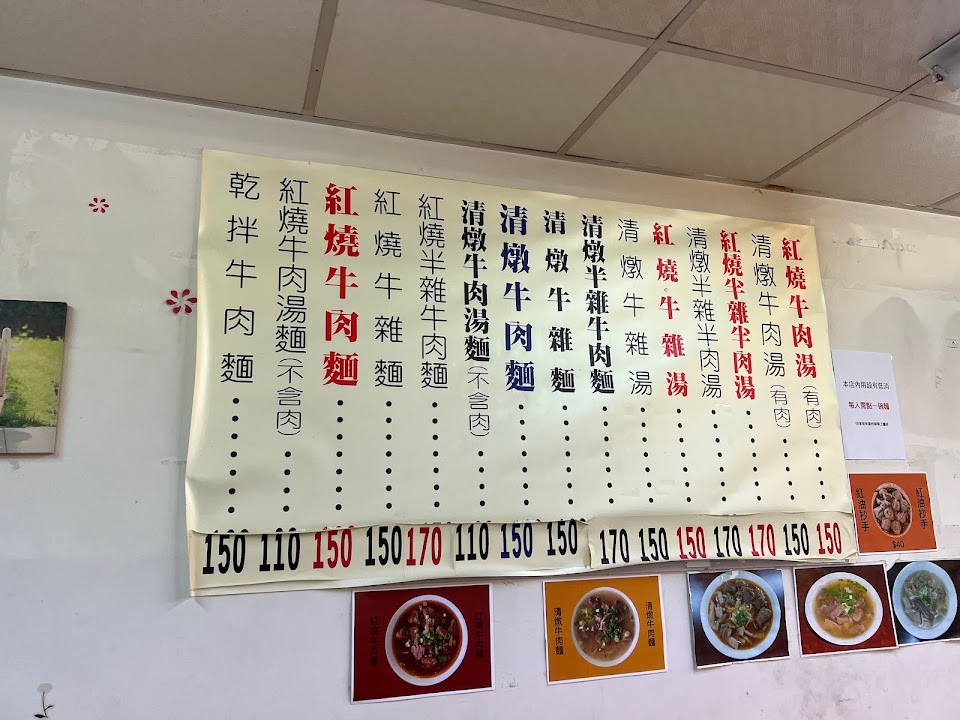 紅燒牛肉湯(有肉)........150
清燉牛肉湯(有肉)........150
紅燒半雜半肉湯........170
清燉半雜半肉湯........170
紅燒牛雜湯........150
清燉牛雜湯........150
清燉半雜牛肉麵........170
清燉牛雜麵........150
清燉牛肉麵........150
清燉牛肉湯麵(不含肉)........110
紅燒半雜牛肉麵........170
紅燒牛雜麵........150
紅燒牛肉麵........150
紅燒牛肉湯麵(不含肉)........110
乾拌牛肉麵........150
本店內用設有低消
每人需點一碗麵
紅油抄手
紅油抄手
$40
清燉牛肉麵
清燉牛肉麵
紅燒牛肉麵
紅燒牛肉麵